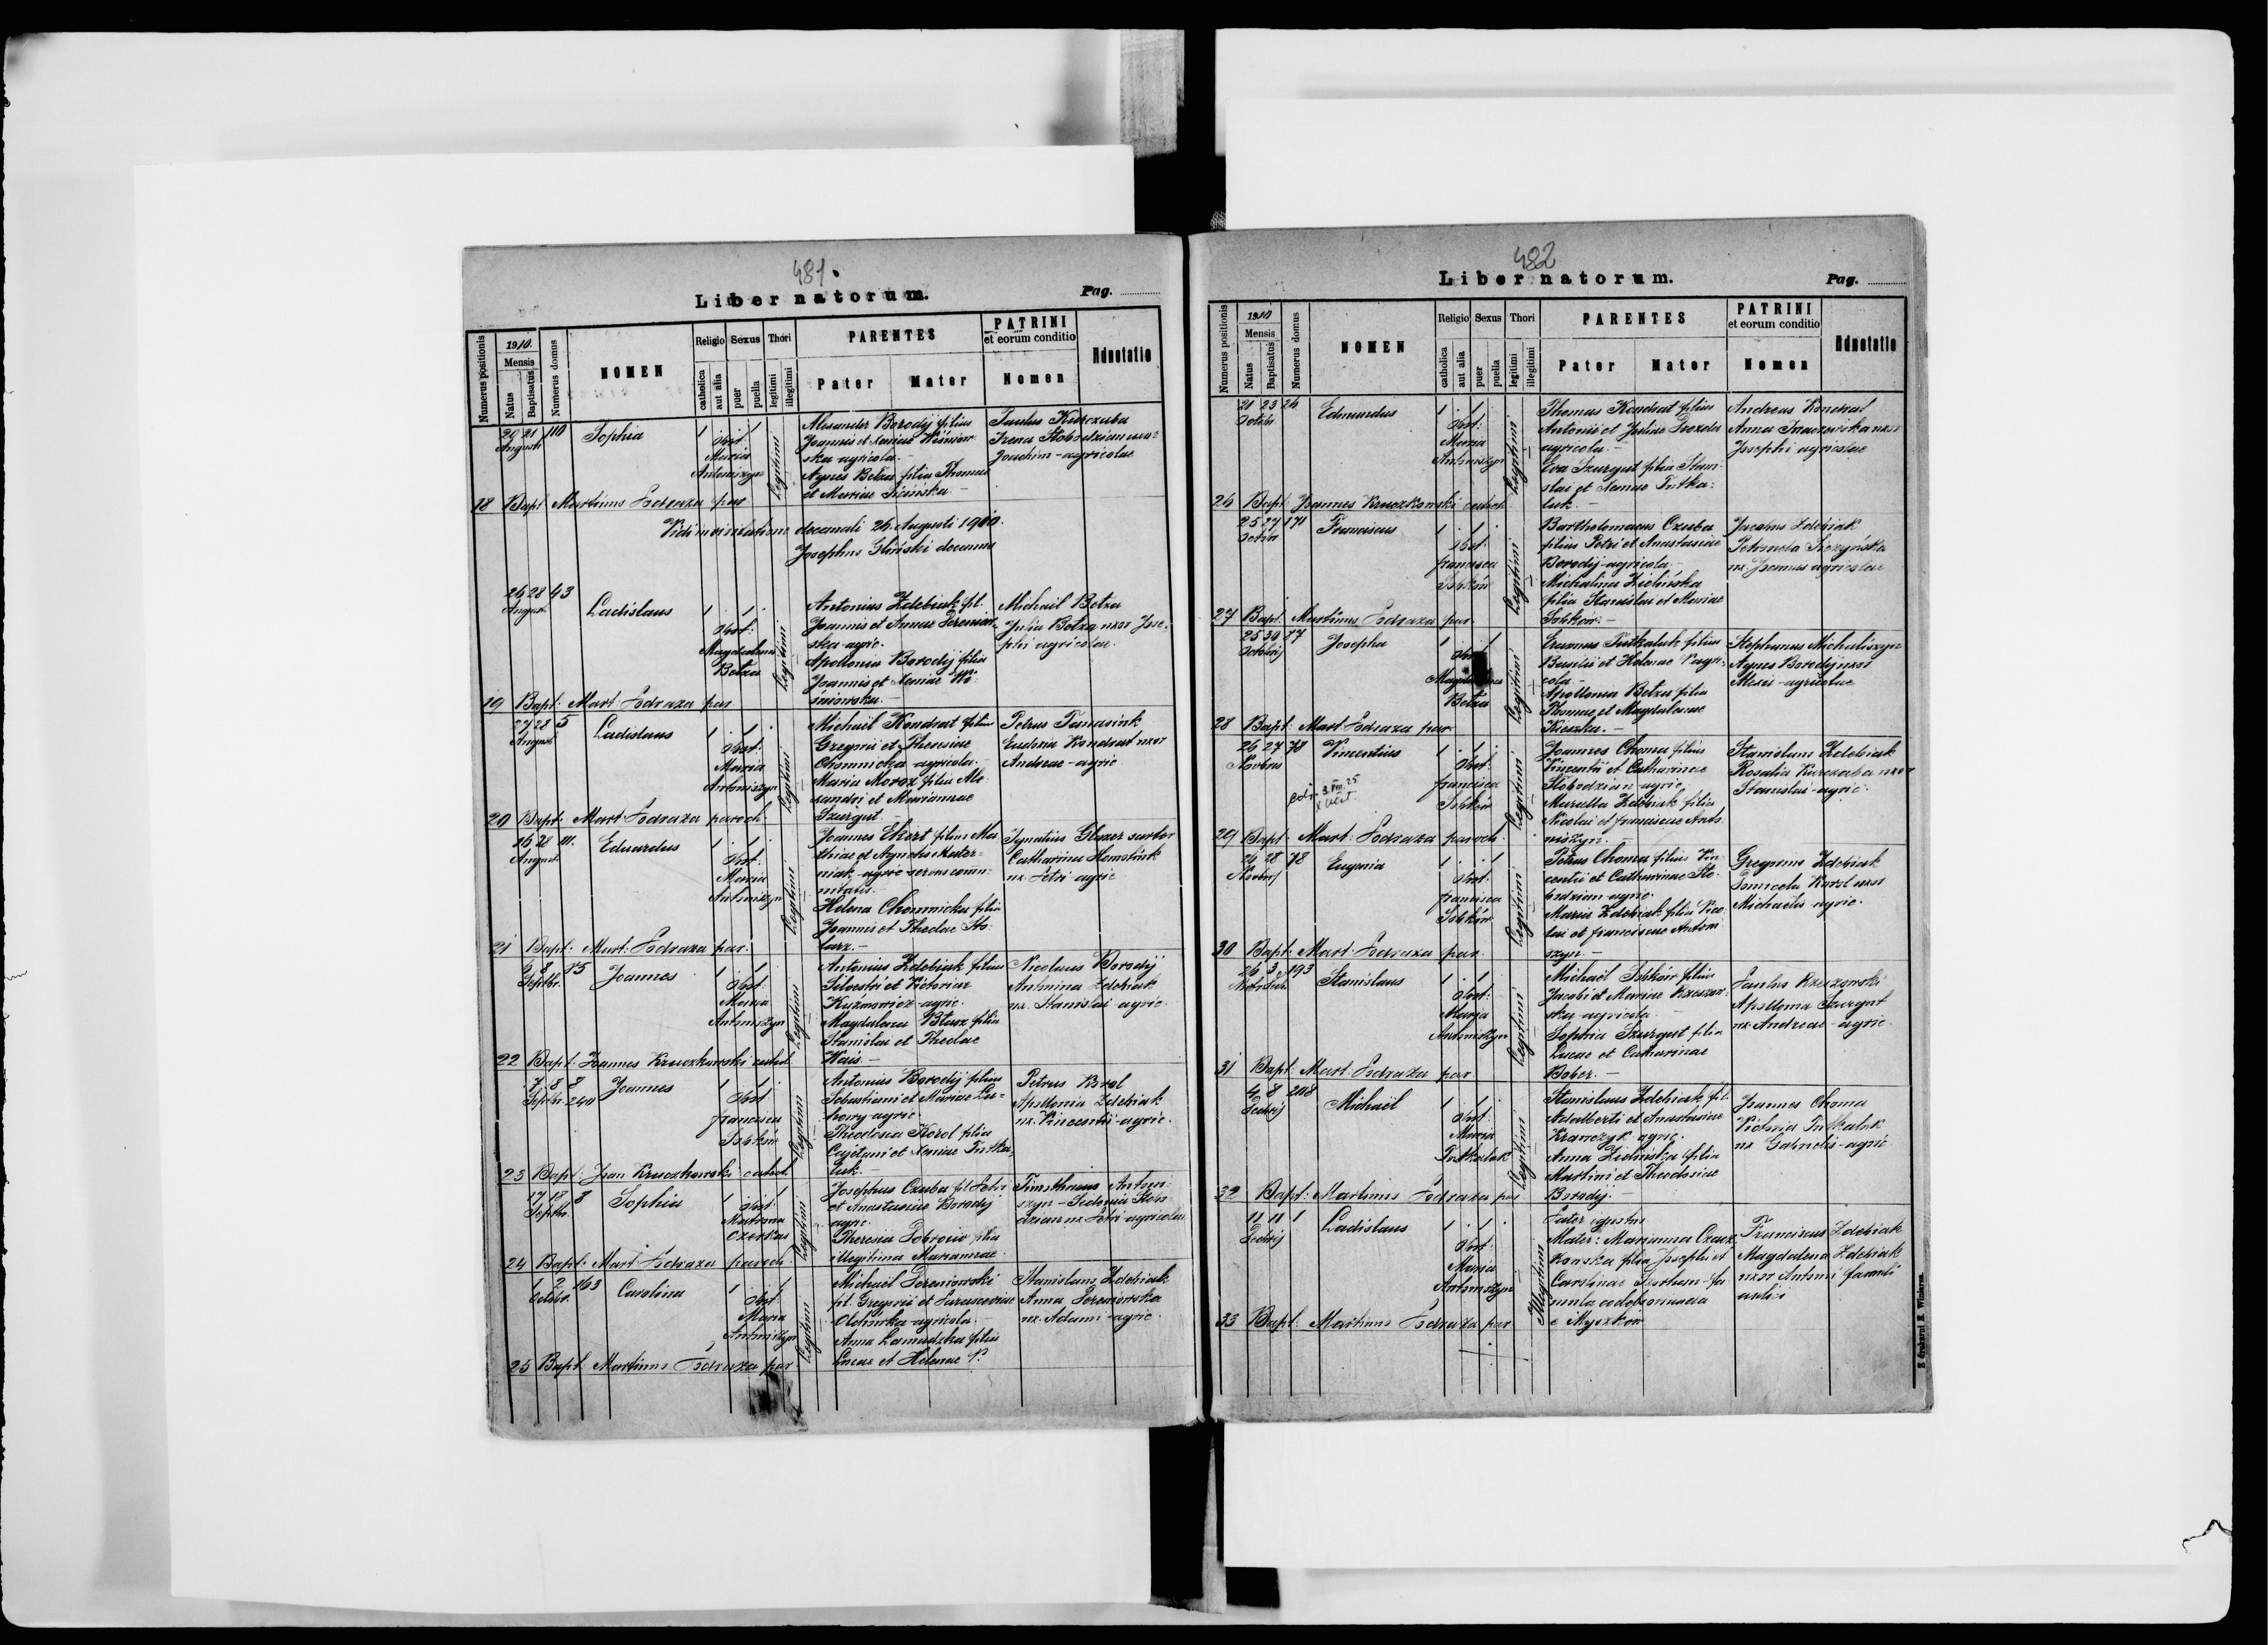 481.
Liber natorum.
Pag.
Numerus positionis
1910.
Mensis
Natus
Baptisatus
Numerus domus
NOMEN
Religio
catholica
aut alia
Sexus
puer
puella
Thori
legitimi
illegitimi
PARENTES
Pater
Mater
PATRINI
et eorum conditio
Nomen
Adnotatio
20 21 110 Sophia 1 1
Augusti
Obst:
Maria
Antoniszyn
Legitimi
Alexander Borodij filius
Joannis et Xeniae Wiśniow
ska agricola.
Agnes Betza filia Thomae
et Mariae
Paulus Kurczaba
Irena Słobodzian uxor
Joachim - agricolae
18 Bapt Martinus Łodraza par
Vidi in visitatione decanali 26. Augusti 1910.
Josephus Gliński decanus
26 28 43
August
Ladislaus 1 1
Obst:
Magdalena
Betza
Legitimi
Antonius Zdebiak fil.
Joannis et Annae
ska agric.
Apollonia Borodij filia
Joannis et Xeniae Wi
śniowska
Michail Betza
Julia Betza uxor Jose
phi agricolae.
19 Bapt: Mart Łodraza par
27 28 5
August
Ladislaus 1 1
Obst:
Maria
Antoniszyn
Legitimi
Michail Kondrat filius
Gregorii et Theresiae
Chomnicka - agricola.
Maria Moroz filia Ale
xandri et Mariannae
Szurgut
Petrus Tanasiuk
Eudoxia Kondrat uxor
Andreae - agric
20 Bapt: Mart Łodraza paroch
16 28 111.
August
Eduardus 1 1
Obst:
Maria
Antoniszyn
Legitimi
Joannes Ekert filius Ma
thiae et Agnetis
niak - agric servus comu
nitatis.
Helena Chomnicka filia
Joannis et Theclae Sto
larz. -
Ignatius Glazer sartor
Catharina
ux. Petri agric
21 Bapt: Mart: Łodraza par.
6 8 15
Septbr.
Joannes 1 1
Obst:
Maria
Antoniszyn
Legitimi
Antonius Zdebiak filius
Silvestri et Victoriae
Kuźmowicz - agric.
Magdalena filia
Stanislai et Theclae
Wais. -
Nicolaus Borodij
Antonina Zdebiak
ux. Stanislai agric.
22 Bapt: Joannes Kruczkowski catech
7 8 8
Septbr. 240
Joannes 1 1
Obst
francisca
Legitimi
Antonius Borodij filius
Sebastiani et Mariae
agric
Theodosia Korol filia
Cajetani et Xeniae Tutka
luk. -
Petrus Korol
Apollonia Zdebiak
ux. Vincentii - agric.
23 Bapt: Joan Kruczkowski catech
17 18 8
Septbr.
Sophia 1 1
Obst
Matrona
Czerkas
Legitimi
Josephus Czuba fil Petri
et Anastasiae Borodij
agric.
Theresia filia
illegitima Mariannae.
Timotheus Antoni
szyn -
dzian ux Petri agricolae
24 Bapt: Mart Łodraza paroch
1 2 163
Octobr.
Carolina 1 1
Obst
Maria
Antoniszyn
Legitimi
Michael
fil. Gregorii et Parascevae
agricola
Anna filia
Lucae et Helenae P.
Stanislaus Zdebiak
Anna
ux. Adami - agric
25 Bapt: Martinus Łodraza par
482
Liber natorum.
Pag.
Numerus positionis
1910
Mensis
Natus
Baptisatus
Numerus domus
NOMEN
Religio
catholica
aut alia
Sexus
puer
puella
Thori
legitimi
illegitimi
PARENTES
Pater
Mater
PATRINI
et eorum conditio
Nomen
Adnotatio
21 23 26
Octobr
Edmundus 1 1
Obst:
Maria
Antoniszyn
Legitimi
Thomas Kondrat filius
Antonii et Juliae
agricola -
Eva Szurgut filia Stani
slai et Xeniae Tutka
luk -
Andreas Kondrat
Anna uxor
Josephi agricolae
26 Bapt: Joannes Kruczkowski catech
25 27 171
Octobr
Franciscus 1 1
Obst:
francisca
Legitimi
Bartholomaeus Czuba
filius Petri et Anastasiae
Borodij - agricola.
Michalina Zielińska
filia Stanislai et Mariae
Jacobus Zdebiak
Petronela
ux. Joannis agricolae
27 Bapt. Martinus Łodraza par
25 30 77
Octobris
Josepha 1 1
Obst
Magdalena
Betza
Legitimi
Erasmus Tutkaluk filius
Basilii et Helenae
cola -
Apollonia Betza filia
Thomae et Magdalenae
Stephanus Michaliszyn
Agnes Borodij uxor
Alexii - agricolae
28 Bapt: Mart Łodraza par
26 27 78
Novbris
Vincentius 1 1
Obst:
francisca
Legitimi
Joannes Choma filius
Vincentii et Catharinae
Słobodzian - agric.
Zdebiak filia
Nicolai et franciscae Anto
niszyn. -
Stanislaus Zdebiak
Rosalia Kurczaba uxor
Stanislai - agric.
29 Bapt: Mart: Łodraza paroch
26 28 78
Novbris
Eugenia 1 1
Obst:
francisca
Legitimi
Petrus Choma filius Vin
centii et Catharinae Sło
bodzian - agric.
Maria Zdebiak filia Nico
lai et franciscae Antoni
szyn. -
Gregorius Zdebiak
Dominicela Korol uxor
Michaelis - agric.
30 Bapt: Mart: Łodraza par.
26 3 193
Stanislaus 1 1
Obst:
Maria
Antoniszyn
Legitimi
Michaël filius
Jacobi et Mariae
ska - agricola
Sophia Szurgut filia
Lucae et Catharinae
Bober. -
Paulus
Apollonia Szurgut
ux. Andreae - agric
31 Bapt: Mart Łodraza par
4 8 208
Decbris
Michaël 1 1
Obst:
Maria
Tutkaluk
Legitimi
Stanislaus Zdebiak fil.
Adalberti et Anastasiae
Krawczyk agric.
Anna Zielińska filia
Martini et Theodosiae
Borodij. -
Joannes Choma
Victoria Tutkaluk
ux Gabrielis - agric
32 Bapt: Martinus Łodraza par
11 11 1
Decbris
Ladislaus 1 1
Obst:
Maria
Antoniszyn
Illegitimi
Pater ignotus
Mater: Marianna
filia Josephi et
Carolinae - fa
mula
e Myszków
Franciscus Zdebiak
Magdalena Zdebiak
uxor Antonii famuli
33 Bapt: Martinus Łodraza par
Z drukarni E. Winiarza.